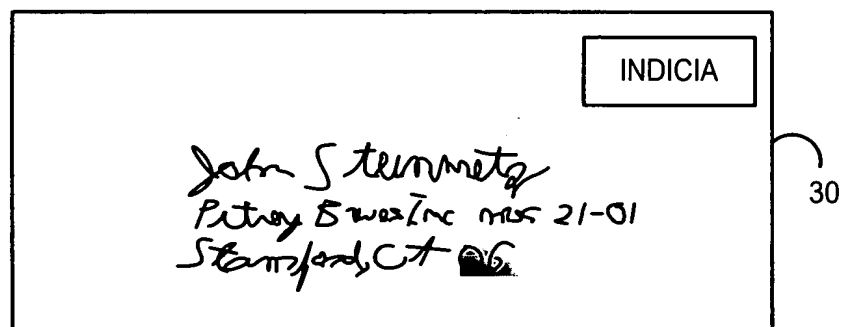 INDICIA
John Steinmetz
Pitney Bowes Inc MS 21-01
Stamford, CT 06
30